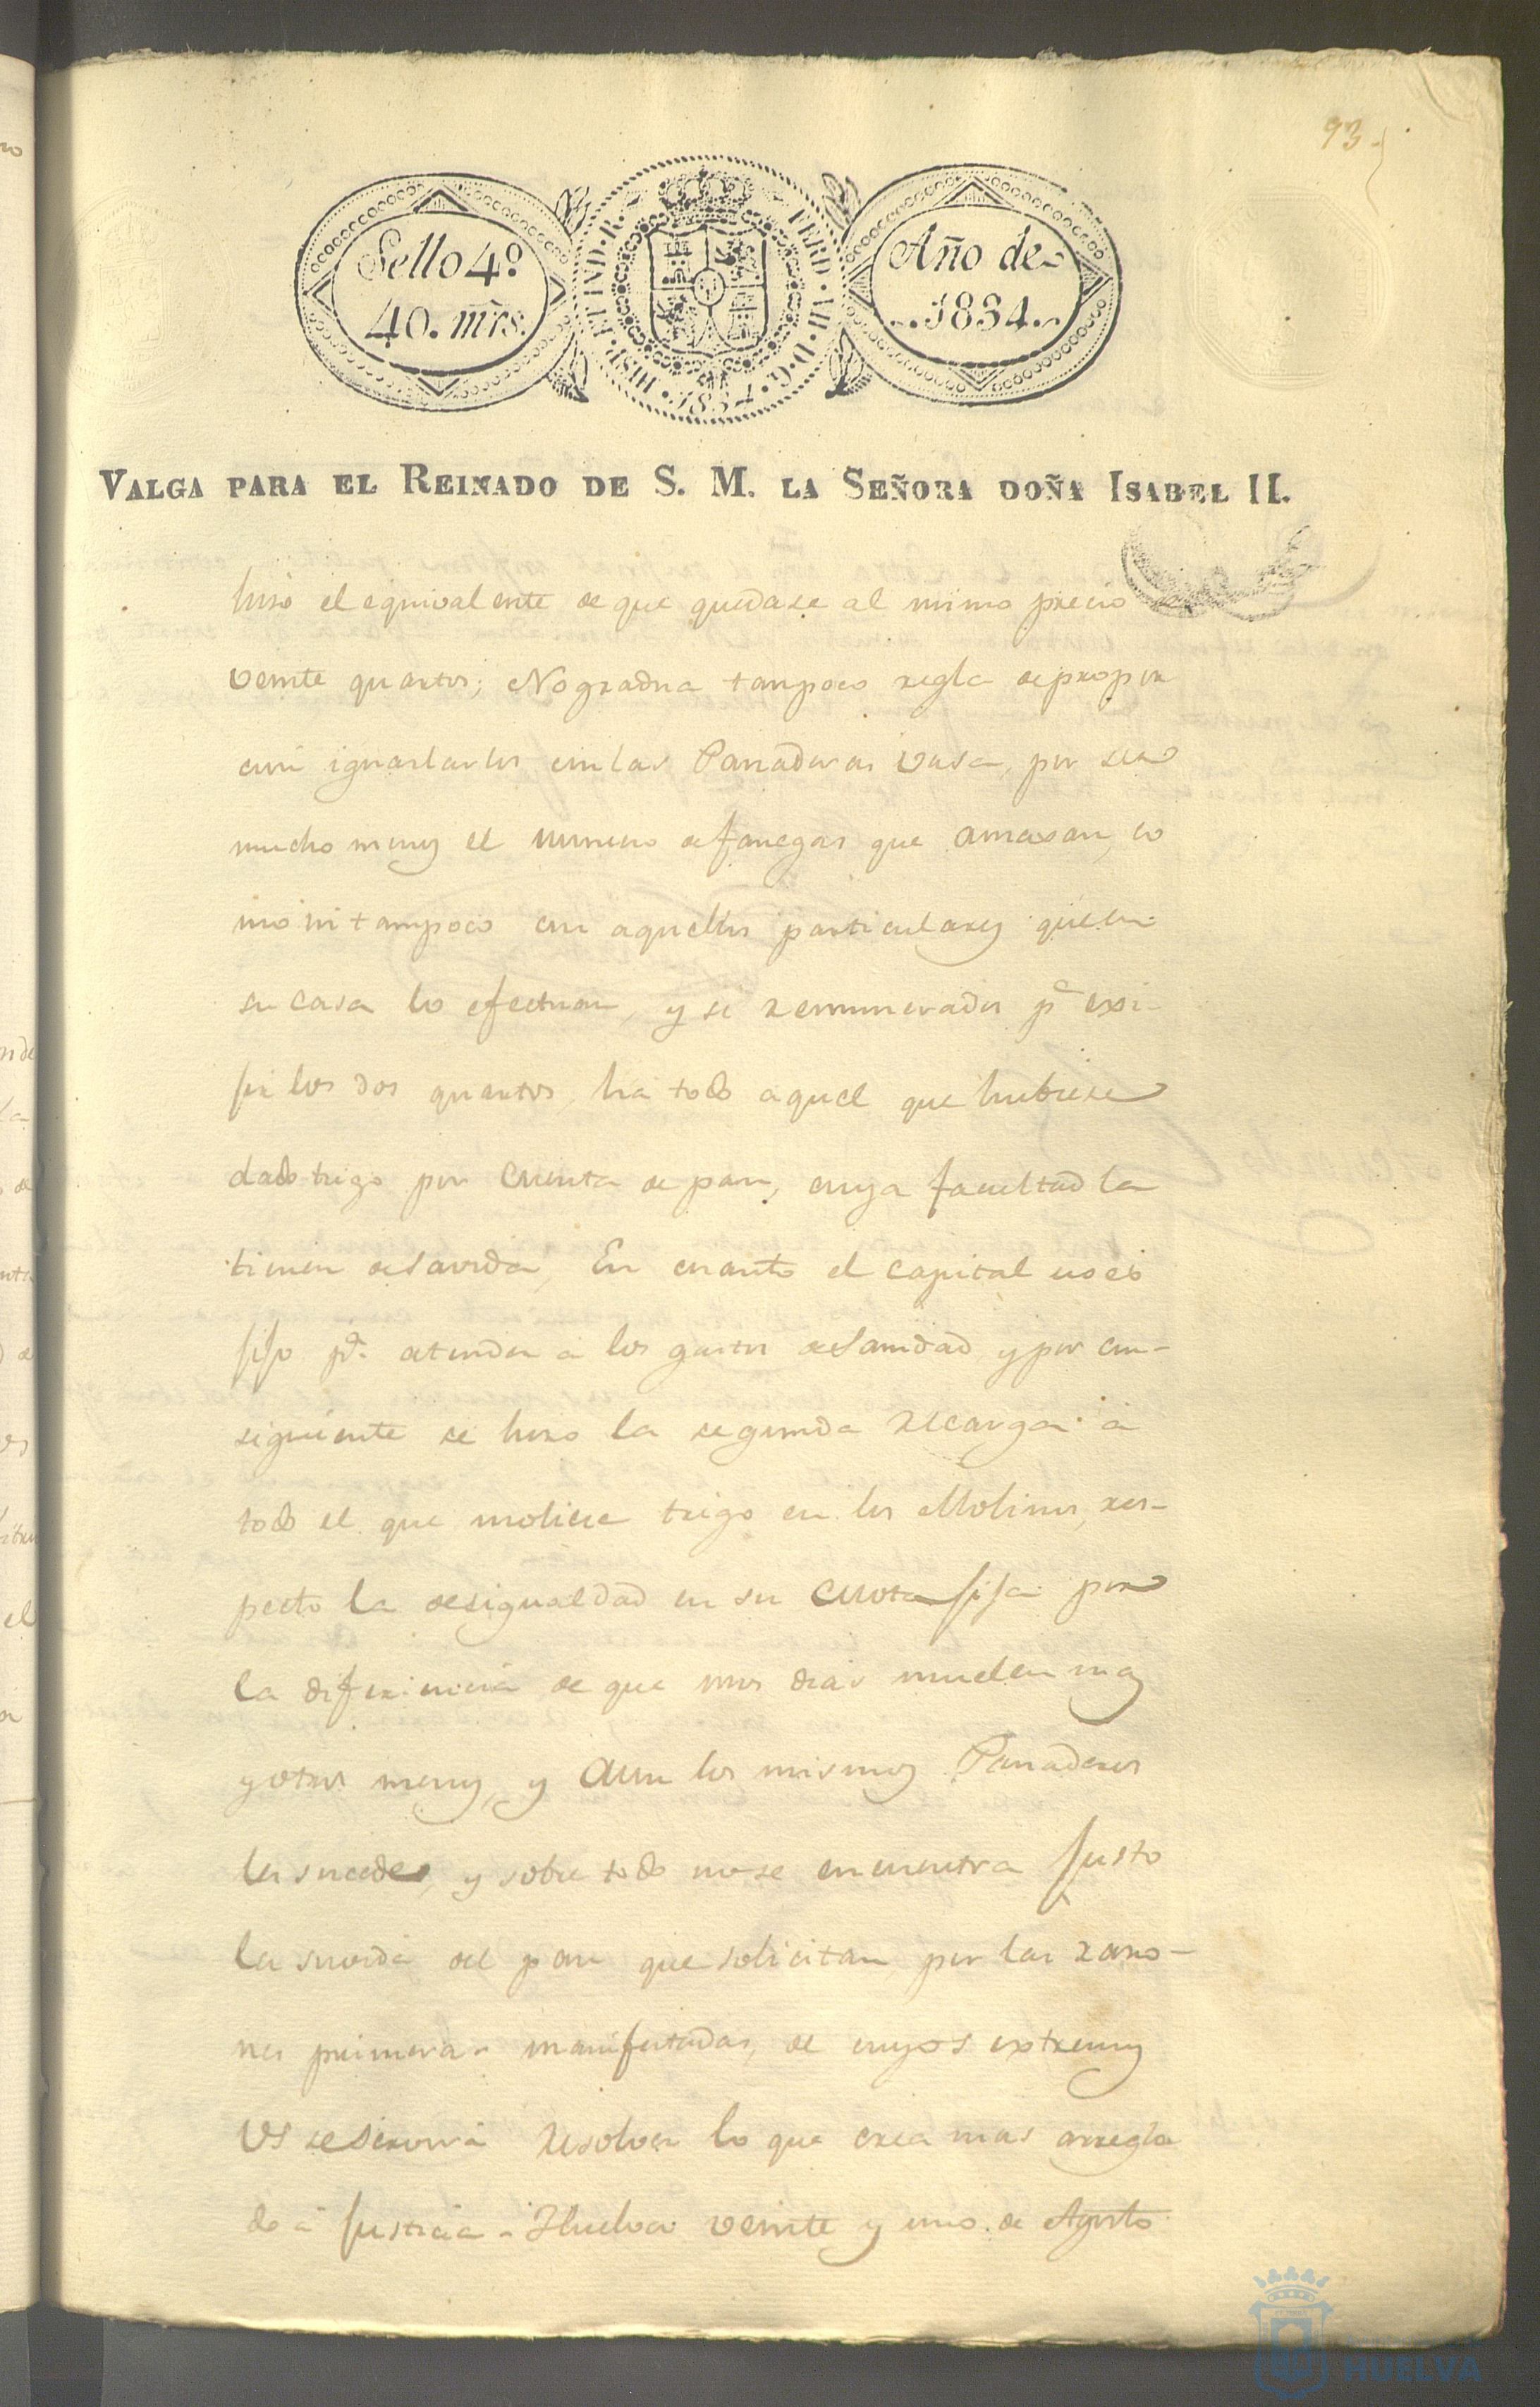 93.
Sello 4º
40. mrs.
HISP. ET IND. R. FERD. VII. D. G. 1834.
Año de
1834.
VALGA PARA EL REINADO DE S. M. LA SEÑORA DOÑA ISABEL II.
hiso el equivalente de que quedase al mimo precio de
veinte quartos; No gradua tampoco regla de propor
cion igualarlos con las Panaderas por ser
mucho menos el numero de fanegas que amasan, co
mo ni tampoco con aquellos particulares que en
su casa lo efectuan, y si remunerados pr exi-
jir los dos quartos, ha todo aquel que hubiese
dado trigo por cuenta de pan, cuya facultad la
tienen En cuanto el capital no es
fijo pª. atender a los gastos de Sanidad y por con-
siguiente se hiso la segunda recarga a
todo el que moliese trigo en los Molinos, res-
pecto la desigualdad en su cuota fija por
la diferiencia de que unos dias muelen mas
y otros menos, y aun los mismos Panaderos
les sucede, y sobre todo no se encuentra justo
la suvida del pan que solicitan por las razo-
nes primeras manifestadas, de cuyos extremos
VS se servira resolver lo que crea mas arregla
do a justicia - Huelva veinte y uno de Agosto
HUELVA